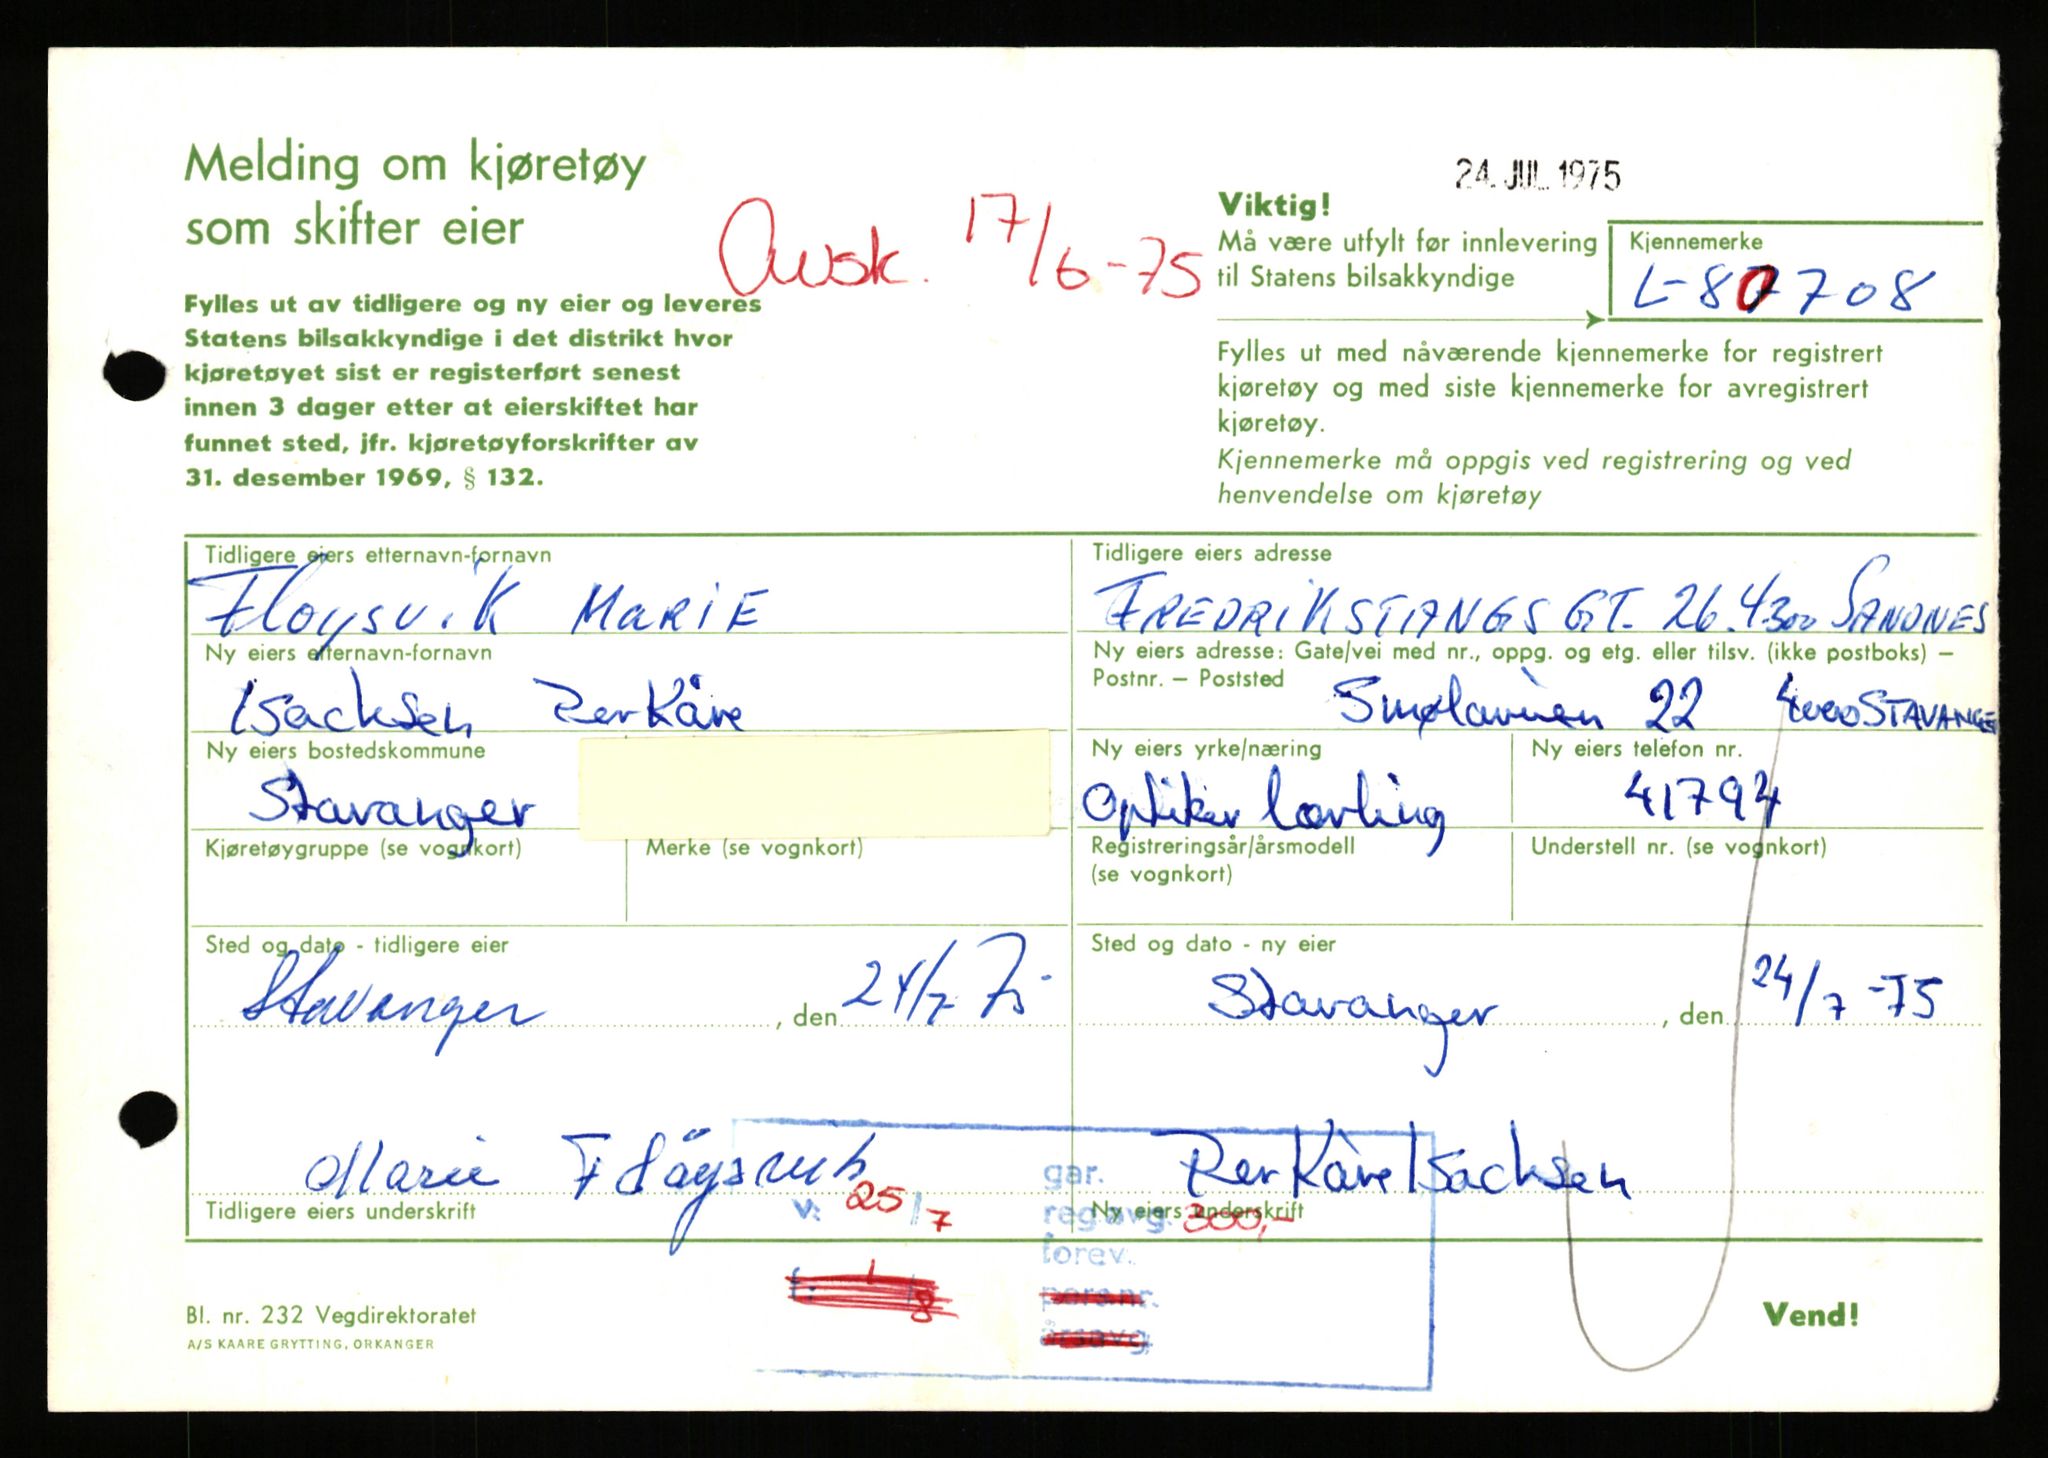 Melding om kjøretøy
som skifter eier
Avsk. 17/6-75
Fylles ut av tidligere og ny eier og leveres
Statens bilsakkyndige i det distrikt hvor
kjøretøyet sist er registerført senest
innen 3 dager etter at eierskiftet har
funnet sted, jfr. kjøretøyforskrifter av
31. desember 1969, § 132.
24. JUL 1975
Viktig!
Må være utfylt før innlevering
til Statens bilsakkyndige
Kjennemerke
L-80708
Fylles ut med nåværende kjennemerke for registrert
kjøretøy og med siste kjennemerke for avregistrert
kjøretøy.
Kjennemerke må oppgis ved registrering og ved
henvendelse om kjøretøy
Tidligere eiers etternavn-fornavn
Fløysvik MARIE
Tidligere eiers adresse
FREDRIKSTANGS GT. 26. 4300 SANDNES
Ny eiers etternavn-fornavn
Isachsen Per Kåre
Ny eiers adresse: Gate/vei med nr., oppg. og etg. eller tilsv. (ikke postboks) –
Postnr. – Poststed
Smølaveien 22 4000 STAVANGER
Ny eiers bostedskommune
Stavanger
Ny eiers yrke/næring
Optiker lærling
Ny eiers telefon nr.
41794
Kjøretøygruppe (se vognkort)
Merke (se vognkort)
Registreringsår/årsmodell
(se vognkort)
Understell nr. (se vognkort)
Sted og dato - tidligere eier
Stavanger, den 24/7 75
Sted og dato - ny eier
Stavanger, den 24/7-75
Marie Fløysvik
Tidligere eiers underskrift
Per Kåre Isachsen
Ny eiers underskrift
v: 25/7
gar.
reg.avg. 300,-
forev.
f: 1/8
pers.nr.
årsavg.
Bl. nr. 232 Vegdirektoratet
A/S KAARE GRYTTING, ORKANGER
Vend!